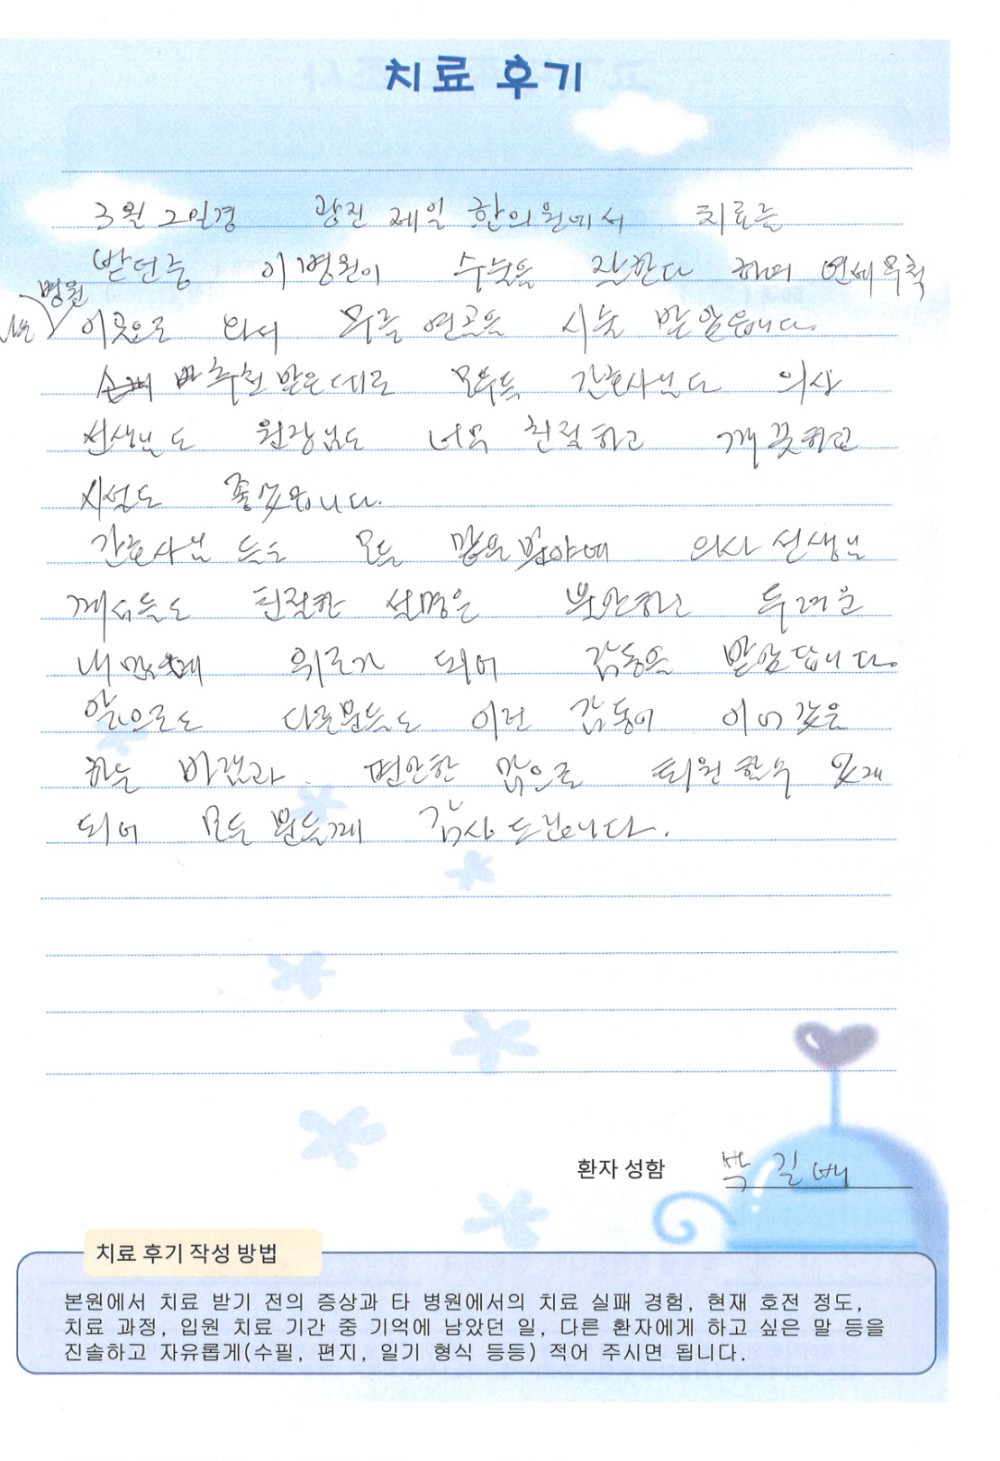 치료 후기
3월 2일경 광진 제일 한의원에서 치료를
받던중 이병원이 수술을 잘한다 하며 연세무척
병원
이곳으로 와서 무릎 연골을 시술 받았읍니다.
추천 받은대로 모두들 간호사님도 의사
선생님도 원장님도 너무 친절하고 깨끗하고
시설도 좋았읍니다.
간호사님 들도 모든 많은 의사 선생님
께서들도 친절한 설명은 불안하고 두려운
내 맘에 위로가 되어 감동을 받았답니다.
앞으로도 다른분들도 이런 감동이 이어 갔은
하는 바램과 편안한 맘으로 퇴원 할수 있게
되어 모든 분들께 감사 드립니다.
환자 성함 박길배
치료 후기 작성 방법
본원에서 치료 받기 전의 증상과 타 병원에서의 치료 실패 경험, 현재 호전 정도,
치료 과정, 입원 치료 기간 중 기억에 남았던 일, 다른 환자에게 하고 싶은 말 등을
진솔하고 자유롭게(수필, 편지, 일기 형식 등등) 적어 주시면 됩니다.